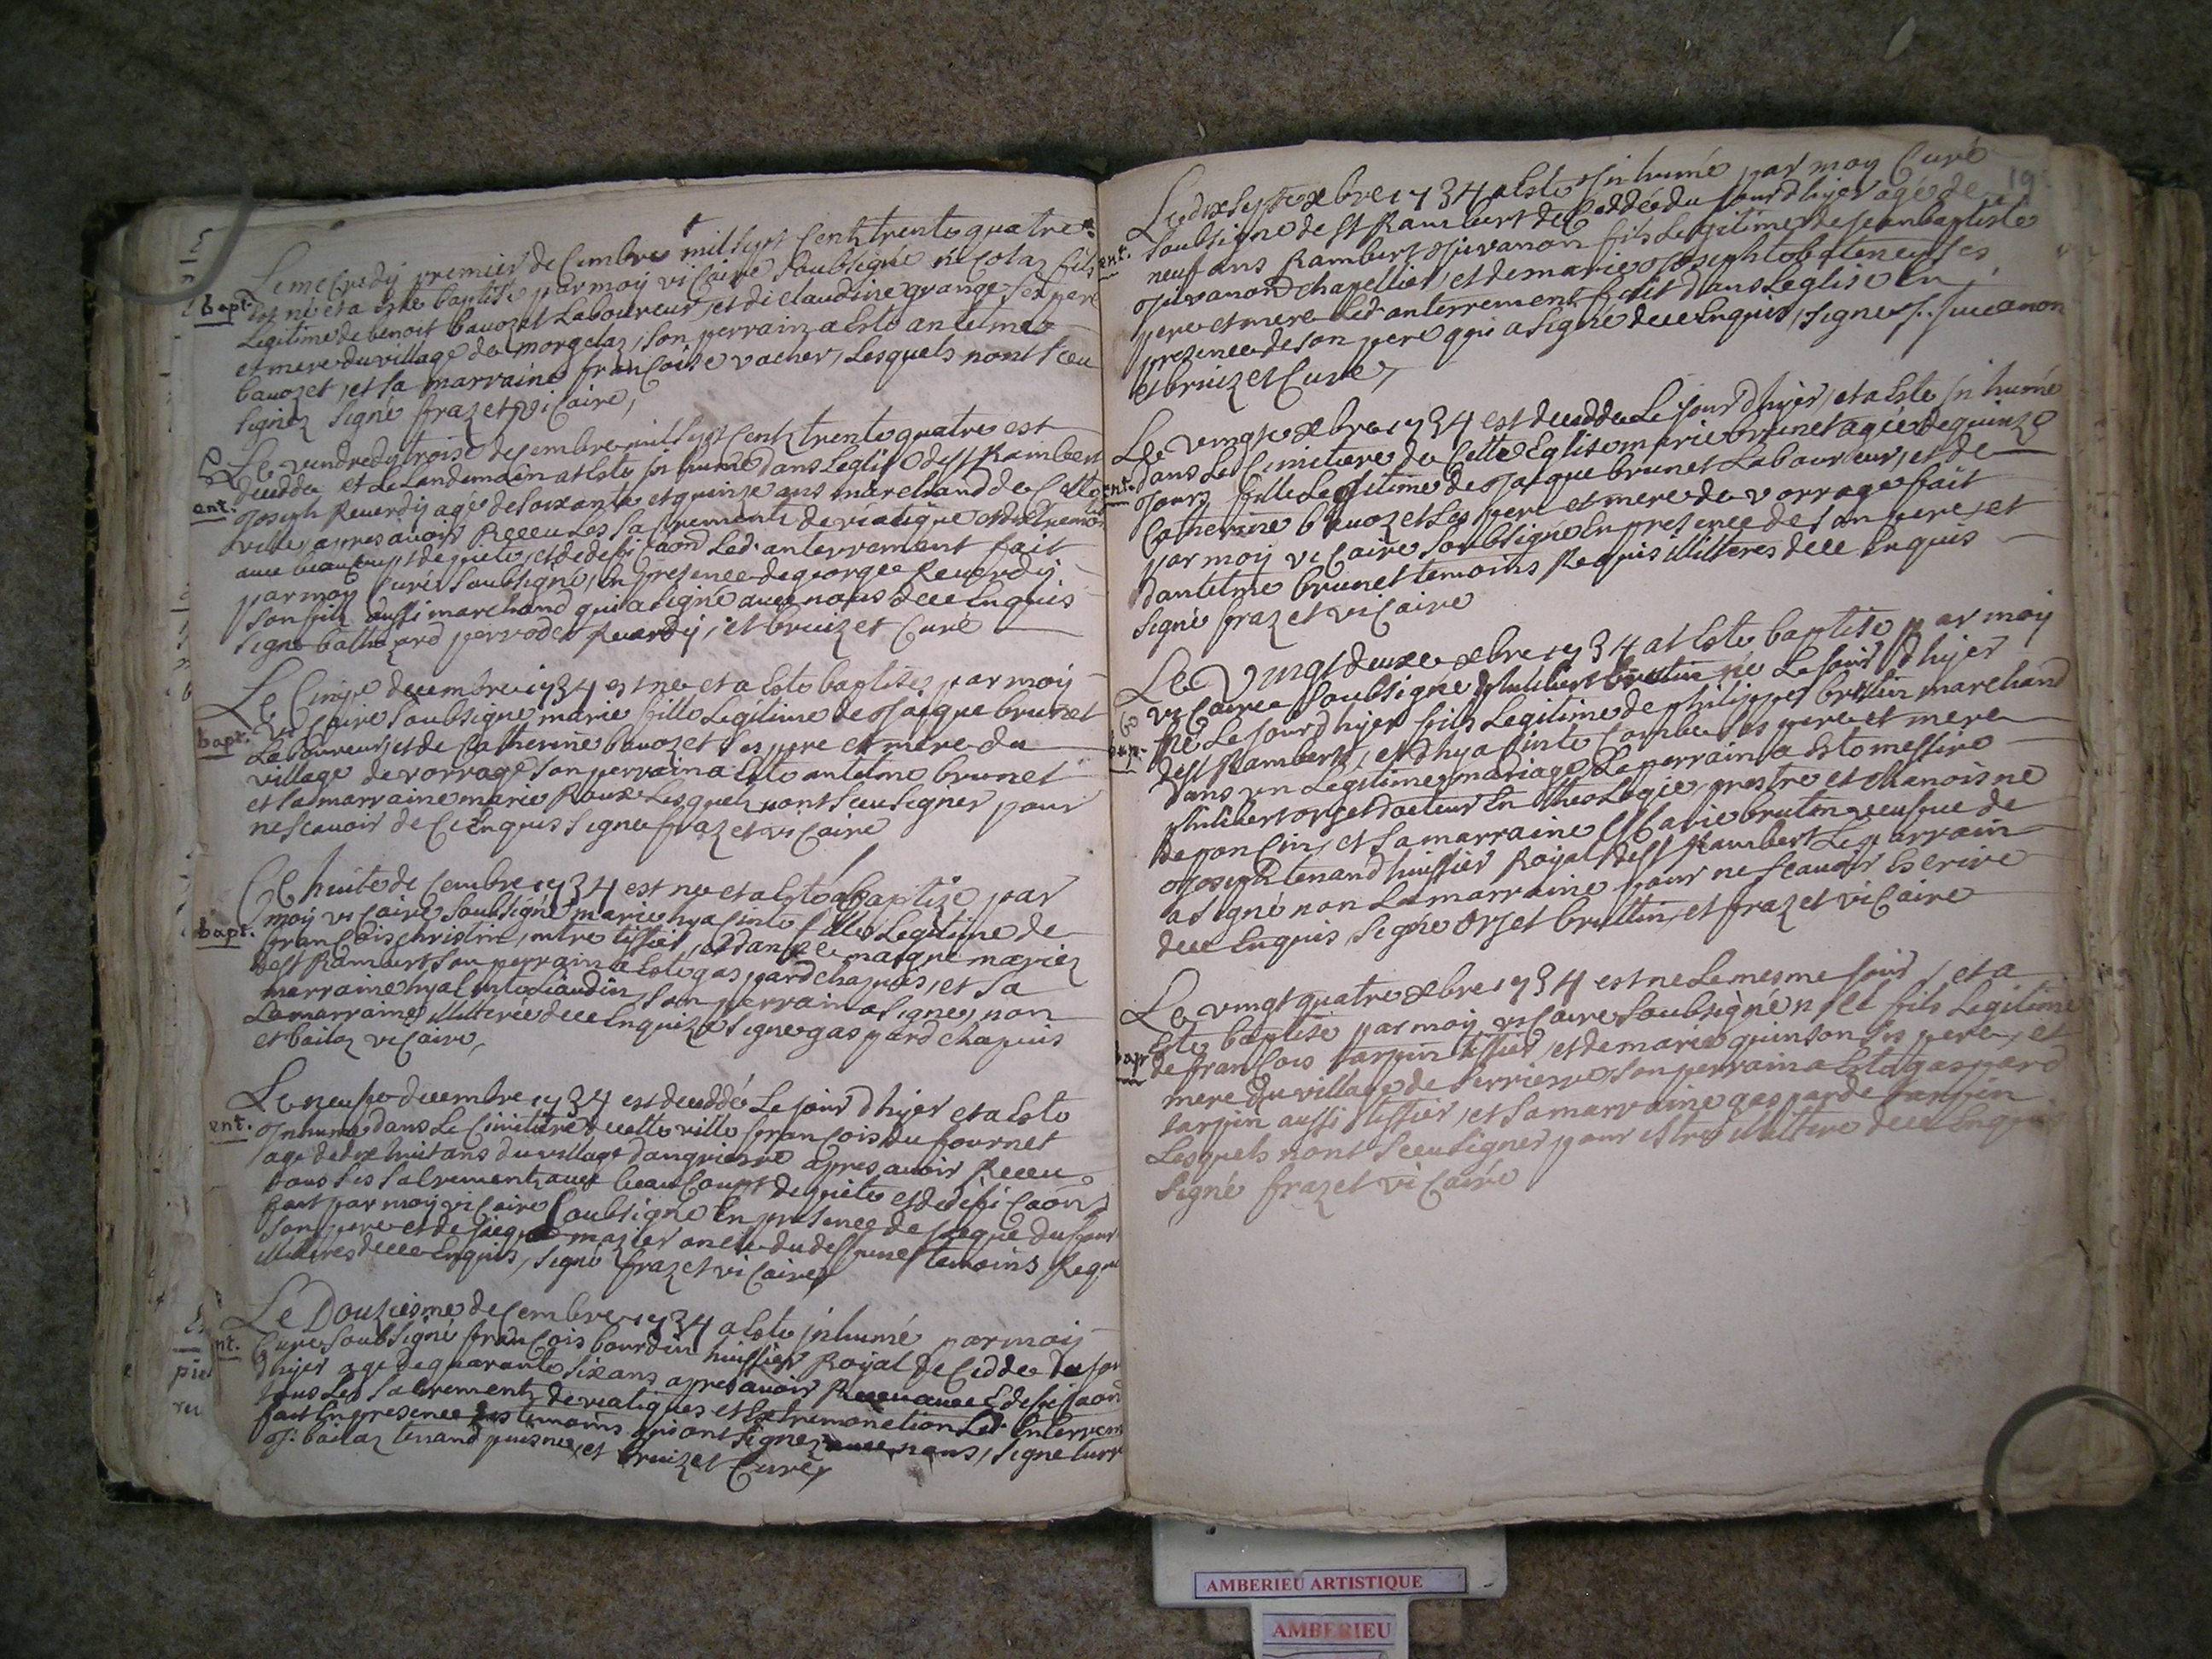 Le mecredy premier decembre mil sept cent trente quatre
bapt. est né et a esté baptisé par moy vicaire soubsigné nicolas fils
Legitime de benoit bauozet Laboureur, et de claudine grange ses pere
et mere du village de morgelaz, son perrain a esté antelme
bauozet, et sa marraine francoise vacher, Lesquels nont sceu
signer signé frazet vicaire,
Le vendredy trois decembre mil sept cent trente quatre est
decedde et Le Landemain at esté inhumé dans Leglise de st Rambert
ent. Joseph Reuerdy agé de soixante et quinze ans marchand de Cette
ville, apres auoir Receu Les sacrements de viatique et dextremon
auec beaucoupt de pieté, et dedeficaon Led. anterrement fait
par moy Curé soubsigné, En presence de george Reuerdy
son fils aussi marchand qui a signé auec nous de ce Enquis
signé balthazard Reuerdy, et bruizet Curé
Le Cinqe decembre 1734 est née et a esté baptisée par moy
bapt. vicaire soubsigné marie fille Legitime de Jacque brunet
Laboureur, et de Catherine bauozet ses pere et mere du
village de vorrage son perrain a esté antelme brunet
et sa marraine marie Roux Lesquels nont sceu signer pour
ne scauoir de ce Enquis signé frazet vicaire
Le huite decembre 1734 est née et a esté baptizé par
moy vicaire soubsigné marie hyacinte fille Legitime de
bapt. francois christin, mtre tissier, et danne marque mariez
de st Rambert son perrain a esté gaspard chapuis, et sa
marraine hyacinte Liaudin, son perrain a signé, non
La marraine illiterée de ce Enquize signé gaspard chapuis
et bailaz vicaire,
Le neufe decembre 1734 est deceddé Le jour dhyer et a esté
ent. Inhumé dans Le Cimitiere de cette ville francois Dufournet
agé de dix huit ans du village dangrieres apres auoir Receu
tous Les sacrements auec beaucoupt de pieté et dedeficaon
fait par moy vicaire soubsigné En presence de Jacque Dufour
son pere et de Jacque mazier oncle du deffunet temoins Requi
illiteres de ce Enquis, signé frazet vicaire
Le Douziesme decembre 1734 a esté inhumé par moy
nt. Curé soubsigné francois bourdin huissier Royal decedde du jour
dhyer agé de quarante six ans apres auoir Receu auec Edeficaon
tous Les sacrements de viatiques et Extremonction Led. Enterrem
fait En presence des temoins qui ont signez auec nous, signé
J. bailaz tenand puisné, et bruizet Curé
19
Le dix septe xbre 1734 a esté Inhumé par moy Curé
soubsigné de st Rambert deceddé du jour dhyer agé de
ent. neuf ans Rambert Juvanon fils Legitime de jean baptiste
Juvanon chapellier, et de marie Joseph ses
pere et mere Led. anterrement fait dans Leglise En
presence de son pere qui a signé de ce Enquis, signé J. Juuanon
et bruizet Curé,
Le vingte xbre 1734 est deceddée Le jour dhyer, et a esté inhumé
dans Le Cimitiere de Cette Eglise marie brunet agée de quinze
ent. Jours fille Legitime de Jacque brunet Laboureur, et de
Catherine bauozet Les pere et mere de vorrage fait
par moy vicaire soubsigné En presence de son pere, et
dantelme brunet temoins Requis illiteres de ce Enquis
signé frazet vicaire
Le Vingt deuxe xbre 1734 at esté baptisé par moy
vicaire soubsigné philibert brottin né Le jour dhyer
né Le jour dhyer fils Legitime de philippe brottin marchand
bap. de st Rambert, et dhyacinte Combe ses pere et mere
dans un Legitime mariage Le perrain a esté messire
philibert orset docteur En theologie, prestre et Chanoisne
de poncin, et sa marraine Marie brottin veufue de
Joseph tenand huissier Royal de st Rambert Le parrain
a signé non La marraine pour ne scauoir Escrire
de ce Enquis signé orset brottin, et frazet vicaire
Le vingt quatre xbre 1734 est né Le mesme jour, et a
esté baptisé par moy vicaire soubsigné noel fils Legitime
bapt. de francois tarpin tissier, et de marie quinson ses pere, et
mere du village de serrieres son perrain a esté gaspard
tarpin aussi tissier, et sa marraine gasparde tarpin
Lesquels nont sceu signer pour estre illitere de ce Enqui
signé frazet vicaire
AMBERIEU ARTISTIQUE
AMBERIEU